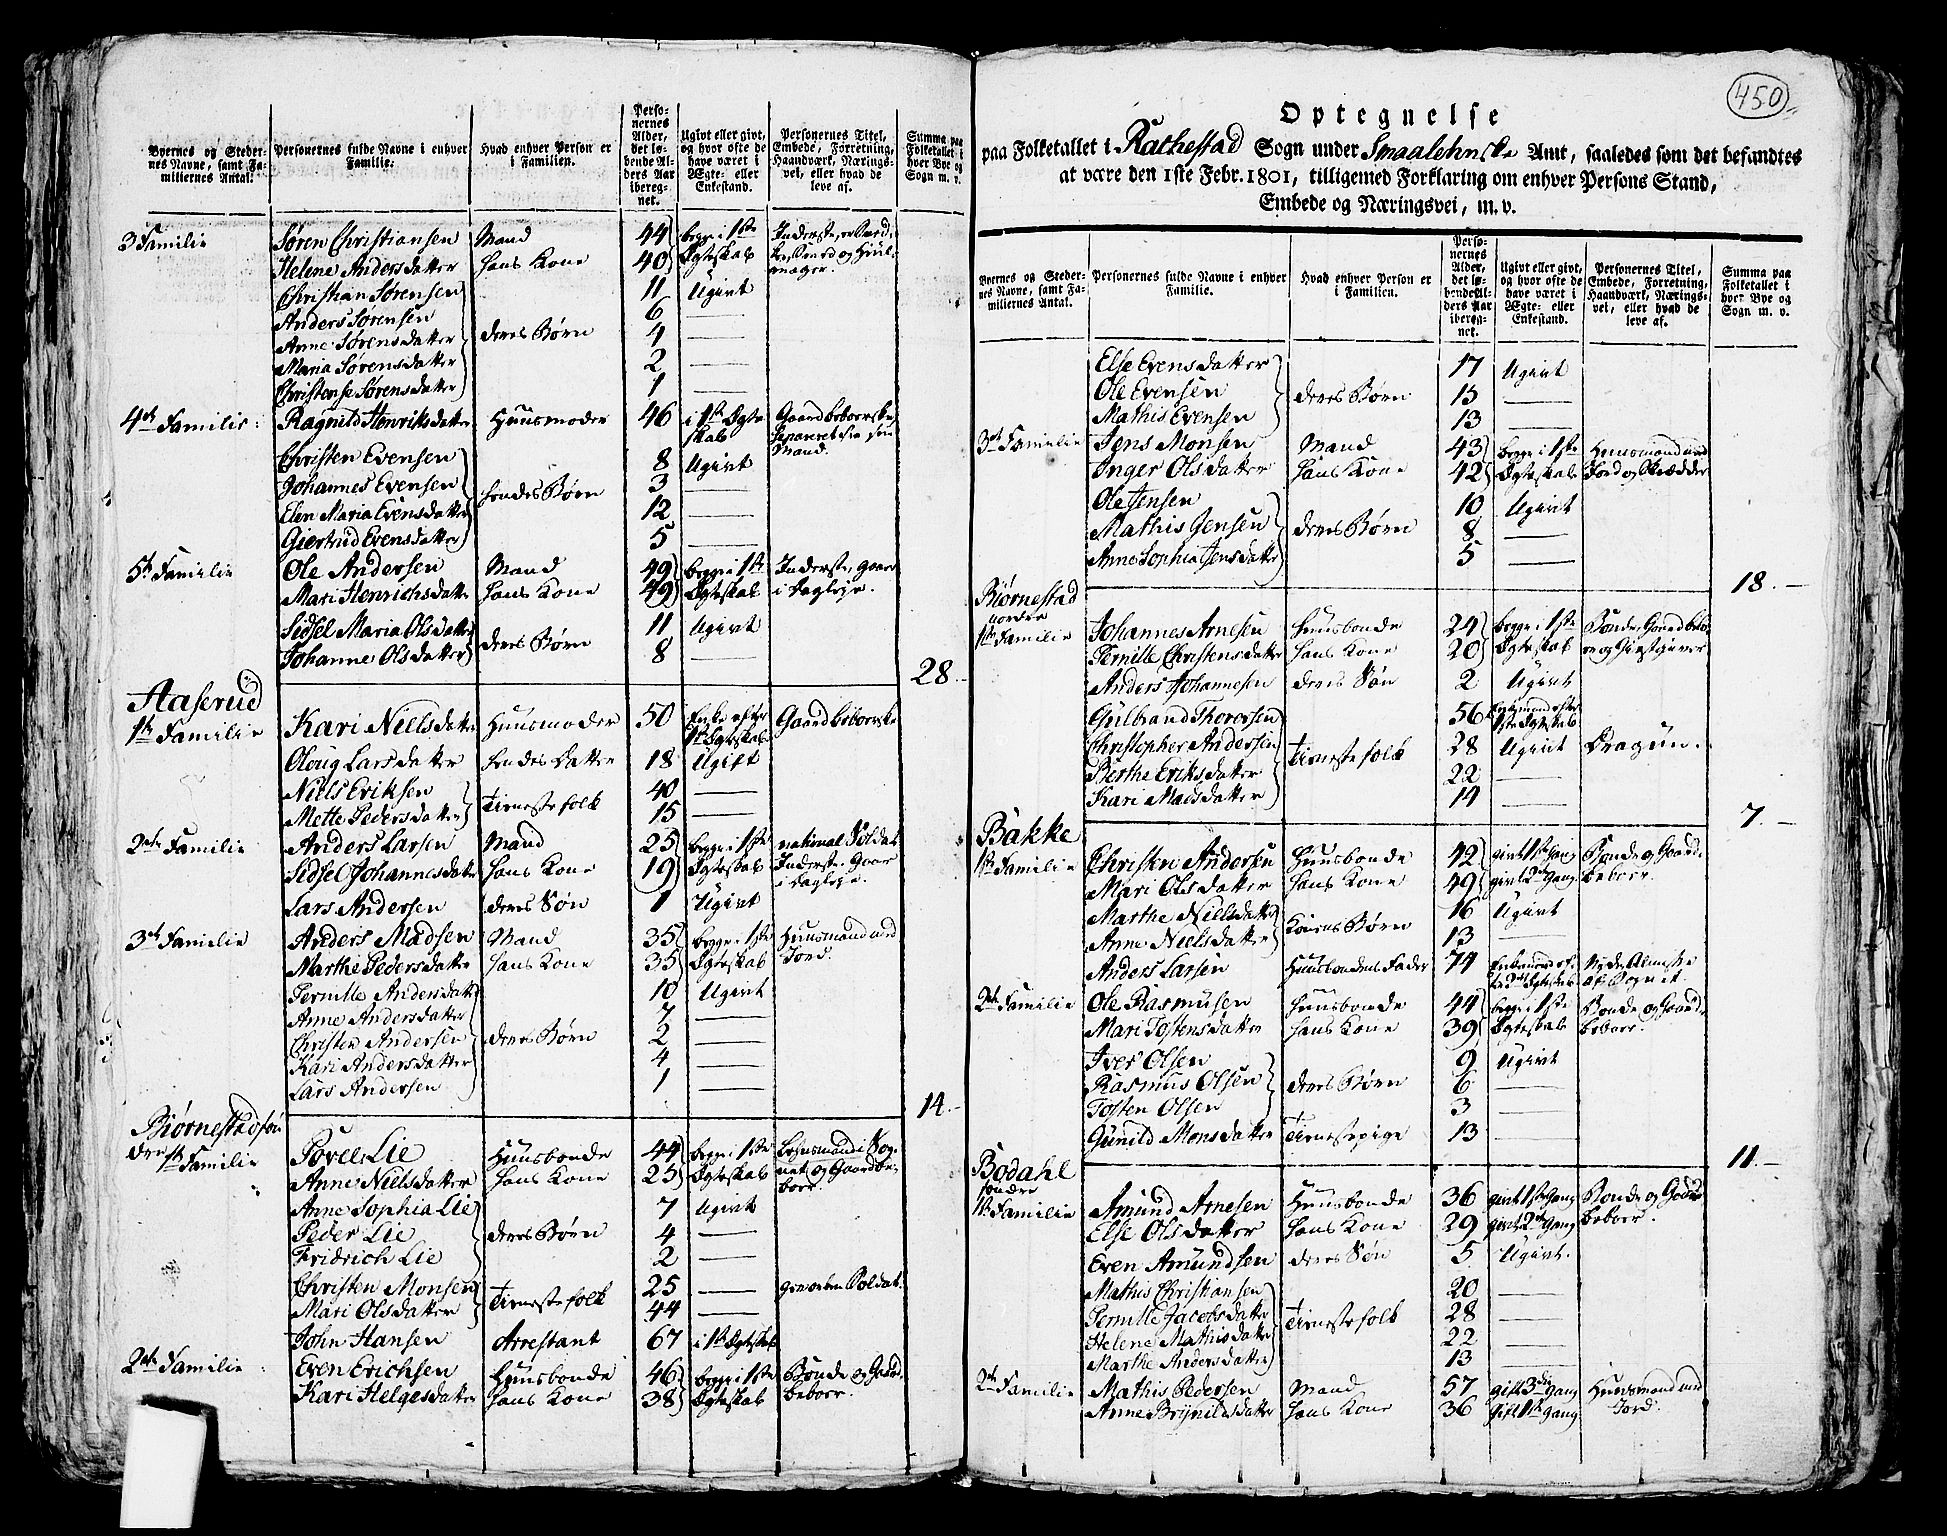 450
Byernes og Steder-
nes Navne, samt Fa-
miliernes Antal.
Personernes fulde Navne i enhver
Familie.
Hvad enhver Person er
i Familien.
Perso-
nernes
Alder,
det lø-
bende Al-
ders Aar
ibereg-
net.
Ugivt eller givt,
og hvor ofte de
have været i
Ægte- eller
Enkestand.
Personernes Titel,
Embede, Forretning,
Haandværk, Nærings-
vei, eller hvad de
leve af.
Summa paa
Folketallet i
hver Bye og
Sogn m. v.
3 Familie Søren Christiansen Mand 44 begge i 1ste
Helene Andersdatter hans Kone 40 Ægteskab
Christian Sørensen 11 Ugivt
Anders Sørensen 6 —
Anne Sørensdatter deres Børn 4 —
Maria Sørensdatter 2 —
Christense Sørensdatter 1 —
4de Familie Ragnild Henriksdatter Huusmoder 46 i 1ste Ægte Gaardbeboerske
skab
Mand.
Christen Evensen 8 Ugivt
Johannes Evensen 3 —
hendes Børn
Elen Maria Evensdatter 12 —
Giertrud Evensdatter 5 —
5te Familie Ole Andersen Mand 49 begge i 1ste Inderste, gaaer
Mari Henrichsdatter hans Kone 49 Ægteskab i Dagleje.
Sidsel Maria Olsdatter 11 Ugivt
deres Børn
Johanne Olsdatter 8 —
28.
Aaserud
1ste Familie Kari Nielsdatter Huusmoder 50 Enke efter Gaardbeboerske
1ste Ægteskab
Oloug Larsdatter hendes Datter 18 Ugift
Niels Eriksen 40 —
Tienestefolk
Mette Pedersdatter 15 —
2den Familie Anders Larsen Mand 25 begge i 1ste national Soldat
Sidsel Johannesdatter hans Kone 19 Ægteskab Inderste, Gaaer
i Dagleje.
Lars Andersen deres Søn 1 Ugivt
3de Familie Anders Madsen Mand 35 begge i 1ste Huusmand med
Marthe Pedersdatter hans Kone 35 Ægteskab Jord.
Pernille Andersdatter 10 Ugivt
Anne Andersdatter 7 —
Christen Andersen deres Børn 2 —
Kari Andersdatter 4 —
Lars Andersen 1 —
14.—
Biørnestad søn
dre
1ste Familie Povel Lie Huusbonde 44 begge i 1ste Lehnsmand i Sog-
Anne Nielsdatter hans Kone 25 Ægteskab net og Gaardbe-
boer.
Anne Sophia Lie 7 Ugivt
Peder Lie deres Børn 4 —
Fridrich Lie 2 —
Christen Monsen 25 — gevorben Soldat.
Tienestefolk
Mari Olsdatter 44 —
John Hansen Arrestant 67 i 1ste Ægteskab
2den Familie Even Erichsen Huusbonde 46 begge i 1ste Bonde og Gaard-
Kari Helgesdatter hans Kone 38 Ægteskab beboer.
Optegnelse
paa Folketallet i Rakkestad Sogn under Smaalehnske Amt, saaledes som det befandtes
at være den 1ste Febr. 1801, tilligemed Forklaring om enhver Persons Stand,
Embede og Næringsvei, m. v.
Byernes og Steder-
nes Navne, samt Fa-
miliernes Antal.
Personernes fulde Navne i enhver
Familie.
Hvad enhver Person er
i Familien.
Perso-
nernes
Alder,
det lø-
bende Al-
ders Aar
ibereg-
net.
Ugivt eller givt,
og hvor ofte de
have været i
Ægte- eller
Enkestand.
Personernes Titel,
Embede, Forretning,
Haandværk, Nærings-
vei, eller hvad de
leve af.
Summa paa
Folketallet i
hver Bye og
Sogn m. v.
Else Evensdatter 17 Ugivt
Ole Evensen deres Børn 15 —
Mathis Evensen 13 —
3de Familie Jens Monsen Mand 43 begge i 1ste Huusmand med
Inger Olsdatter hans Kone 42 Ægteskab Jord og Skrædder
Ole Jensen 10 Ugivt
Mathis Jensen deres Børn 8 —
Anne Sophia Jensdatter 5 —
18.—
Biørnestad
nordre
1ste Familie Johannes Arnesen Huusbonde 24 begge i 1ste Bonde, Gaardbebo-
Pernille Christensdatter hans Kone 20 Ægteskab er og Giestgiver
Anders Johannesen deres Søn 2 Ugivt
Gulbrand Thorersen 56 Enkemand efter
1ste Ægteskab
Christopher Andersen 28 Ugivt Dragun.
Tienestefolk
Berthe Eriksdatter 22 —
Kari Madsdatter 14 —
7.—
Bakke
1ste Familie Christen Andersen Huusbonde 42 givt 1ste Gang Bonde og Gaard-
Mari Olsdatter hans Kone 49 givt 2den Gang beboer.
Marthe Nielsdatter 16 Ugivt
Konens Børn
Anne Nielsdatter 13 —
Anders Larsen Huusbondens Fader 74
2den Familie Ole Rasmusen Huusbonde 44 begge i 1ste Bonde og Gaard-
Mari Tostensdatter hans Kone 39 Ægteskab beboer.
Iver Olsen 9 Ugivt
Rasmus Olsen deres Børn 6 —
Tosten Olsen 3 —
Gunild Monsdatter Tienestepige 13 —
11.—
Bodahl
søndre
1ste Familie Amund Arnesen Huusbonde 36 givt 1ste Gang Bonde og Gaard
Else Olsdatter hans Kone 29 givt 2den Gang beboer.
Even Amundsen deres Søn 5 Ugivt.
Mathis Christiansen 20 —
Pernille Jacobsdatter 28 —
Tienestefolk
Helene Mathisdatter 22 —
Marthe Andersdatter 13 —
2den Familie Mathis Pedersen Mand 57 gift 3die Gang Huusmand med
Anne Brynildsdatter hans Kone 36 gift 1ste Gang Jord.